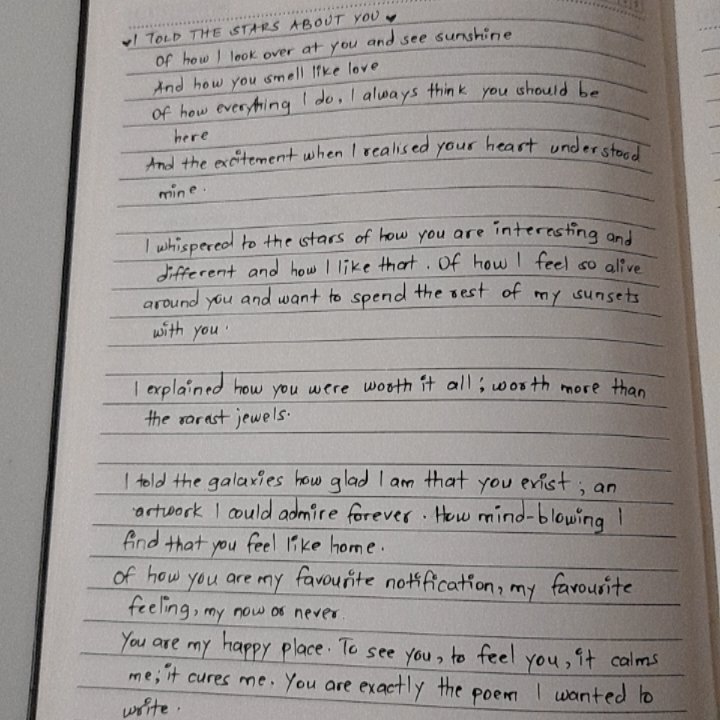 ♥I TOLD THE STARS ABOUT YOU♥
Of how I look over at you and see sunshine
And how you smell like love
Of how everything I do, I always think you should be
here
And the excitement when I realised your heart understood
mine.
I whispered to the stars of how you are interesting and
different and how I like that. Of how I feel so alive
around you and want to spend the rest of my sunsets
with you.
I explained how you were worth it all; worth more than
the rarest jewels.
I told the galaxies how glad I am that you exist; an
artwork I could admire forever. How mind-blowing I
find that you feel like home.
Of how you are my favourite notification, my favourite
feeling, my now or never.
You are my happy place. To see you, to feel you, it calms
me; it cures me. You are exactly the poem I wanted to
write.